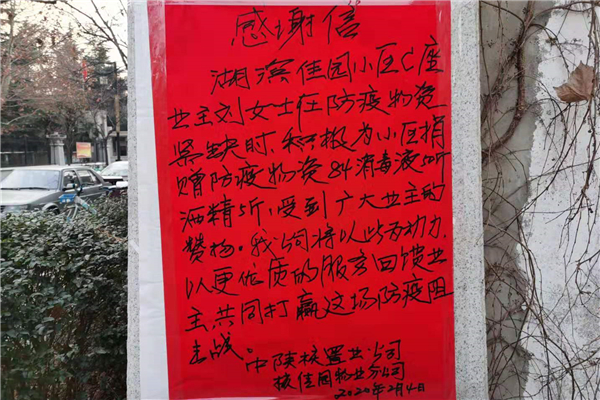 感谢信
湖滨佳园小区C座
业主刘女士在防疫物资
紧缺时，积极为小区捐
赠防疫物资84消毒液50斤
酒精5斤，受到广大业主的
赞扬。我们将以此为动力，
以更优质的服务回馈业
主共同打赢这场防疫阻
击战。
中陕核置业公司
核佳园物业分公司
2020年2月4日